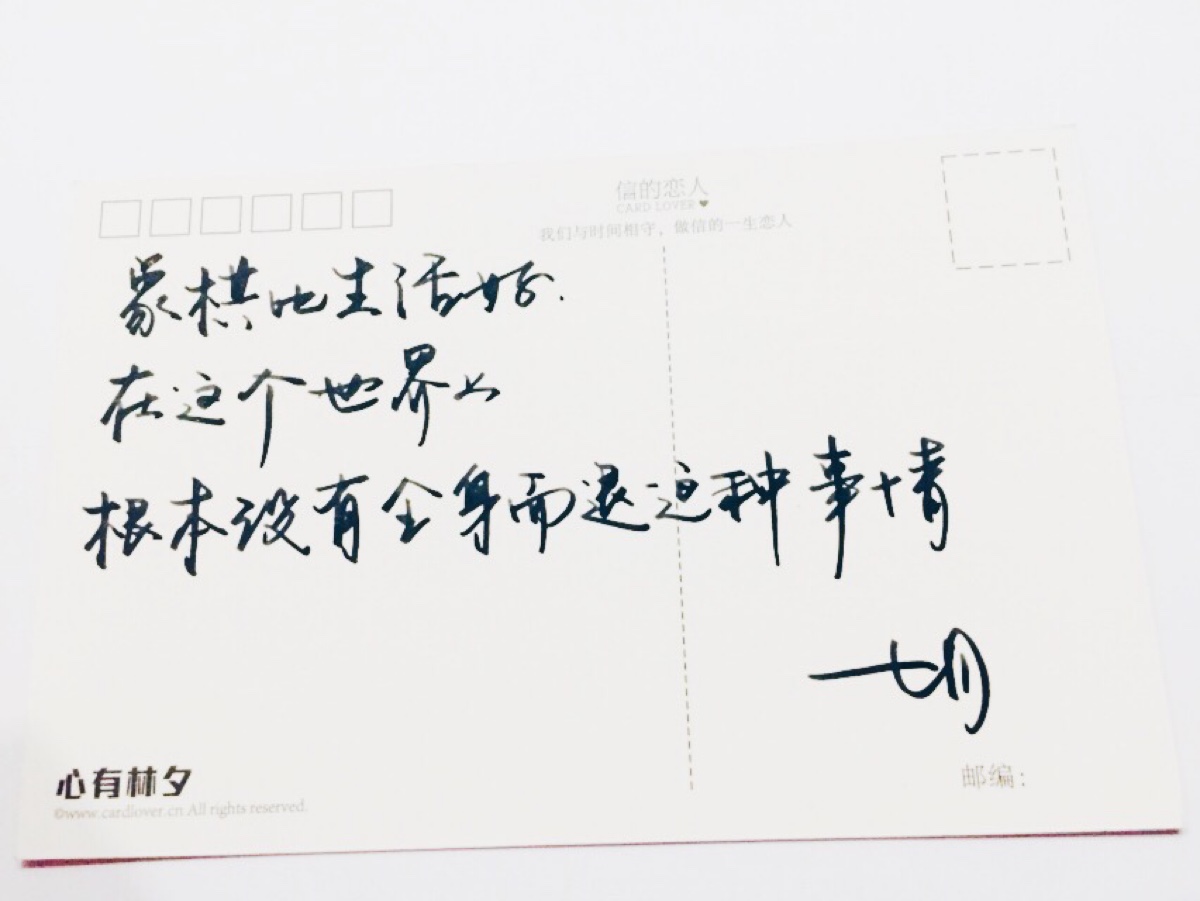 信的恋人
CARD LOVER
我们与时间相守，做信的一生恋人
象棋比生活好.
在这个世界上
根本没有全身而退这种事情
七月
心有林夕
©www.cardlover.cn All rights reserved.
邮编：